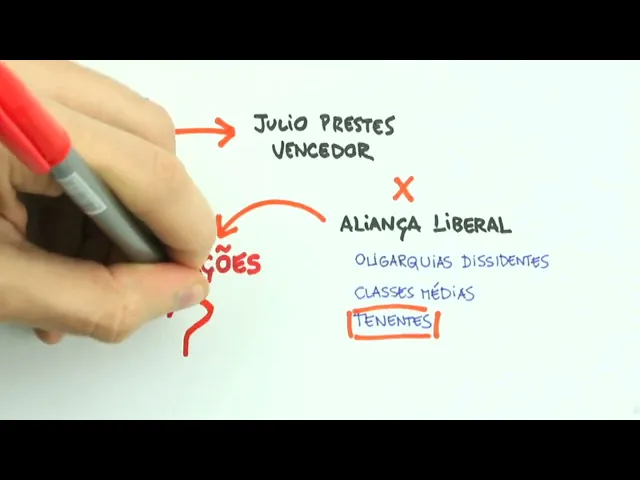 JULIO PRESTES
VENCEDOR
X
ALIANÇA LIBERAL
OLIGARQUIAS DISSIDENTES
CLASSES MÉDIAS
TENENTES
?